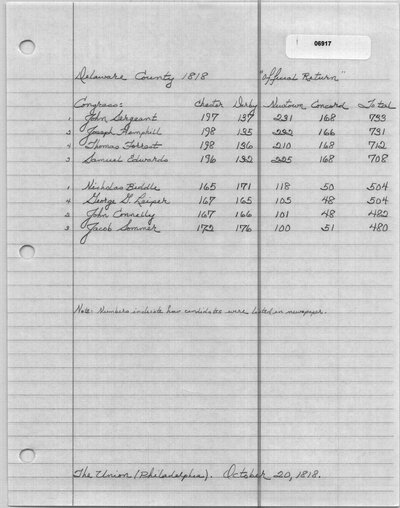 06917
Delaware County 1818 "Official Return"
Congress: Chester Derby Newtown Concord Total
1 John Sergeant 197 137 231 168 733
2 Joseph Hemphill 198 135 232 166 731
4 Thomas Forrest 198 136 210 168 712
3 Samuel Edwards 196 132 225 168 708
1 Nicholas Biddle 165 171 118 50 504
4 George G. Leiper 167 165 105 48 504
2 John Connelly 167 166 101 48 482
3 Jacob Sommer 172 176 100 51 480
Note: Numbers indicate how candidates were listed in newspaper.
The Union (Philadelphia). October 20, 1818.